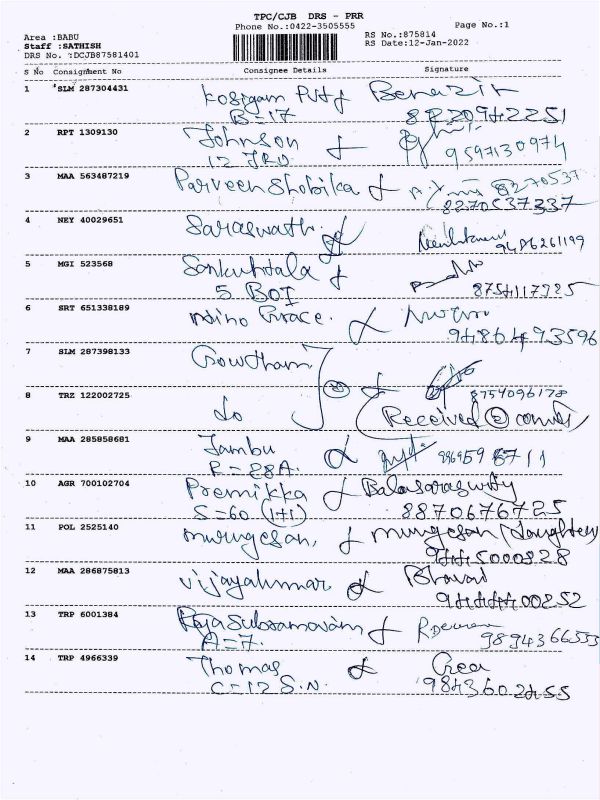 TPC/CJB DRS - PRR
Phone No.:0422-3505555
Page No.:1
Area :BABU
RS No.:875814
Staff :SATHISH
RS Date:12-Jan-2022
DRS No. :DCJB87581401
S No Consignment No Consignee Details Signature
1 SLM 287304431 Benazir
B=17 8220942251
2 RPT 1309130 Johnson
12 9597130974
3 MAA 563487219 Parveen Shobika
8270537237
4 NEY 40029651 Saraswath
9486261199
5 MGI 523568 Sankuntala
5 BOI 8754117325
6 SRT 651338189 Grace.
9486493596
7 SLM 287398133 Gowtham
8754096178
8 TRZ 122002725 do Received
9 MAA 285858681 Jambu
R=28A.
10 AGR 700102704 Premikka Balasaraswathy
S=60 (1+1) 8870676725
11 POL 2525140 murugesan, murugesan (daughter)
9445000828
12 MAA 286875813 Vijayakumar
9444400252
13 TRP 6001384
A=7. 9894366553
14 TRP 4966339 Thomas
C=12 S.N. 9843602455